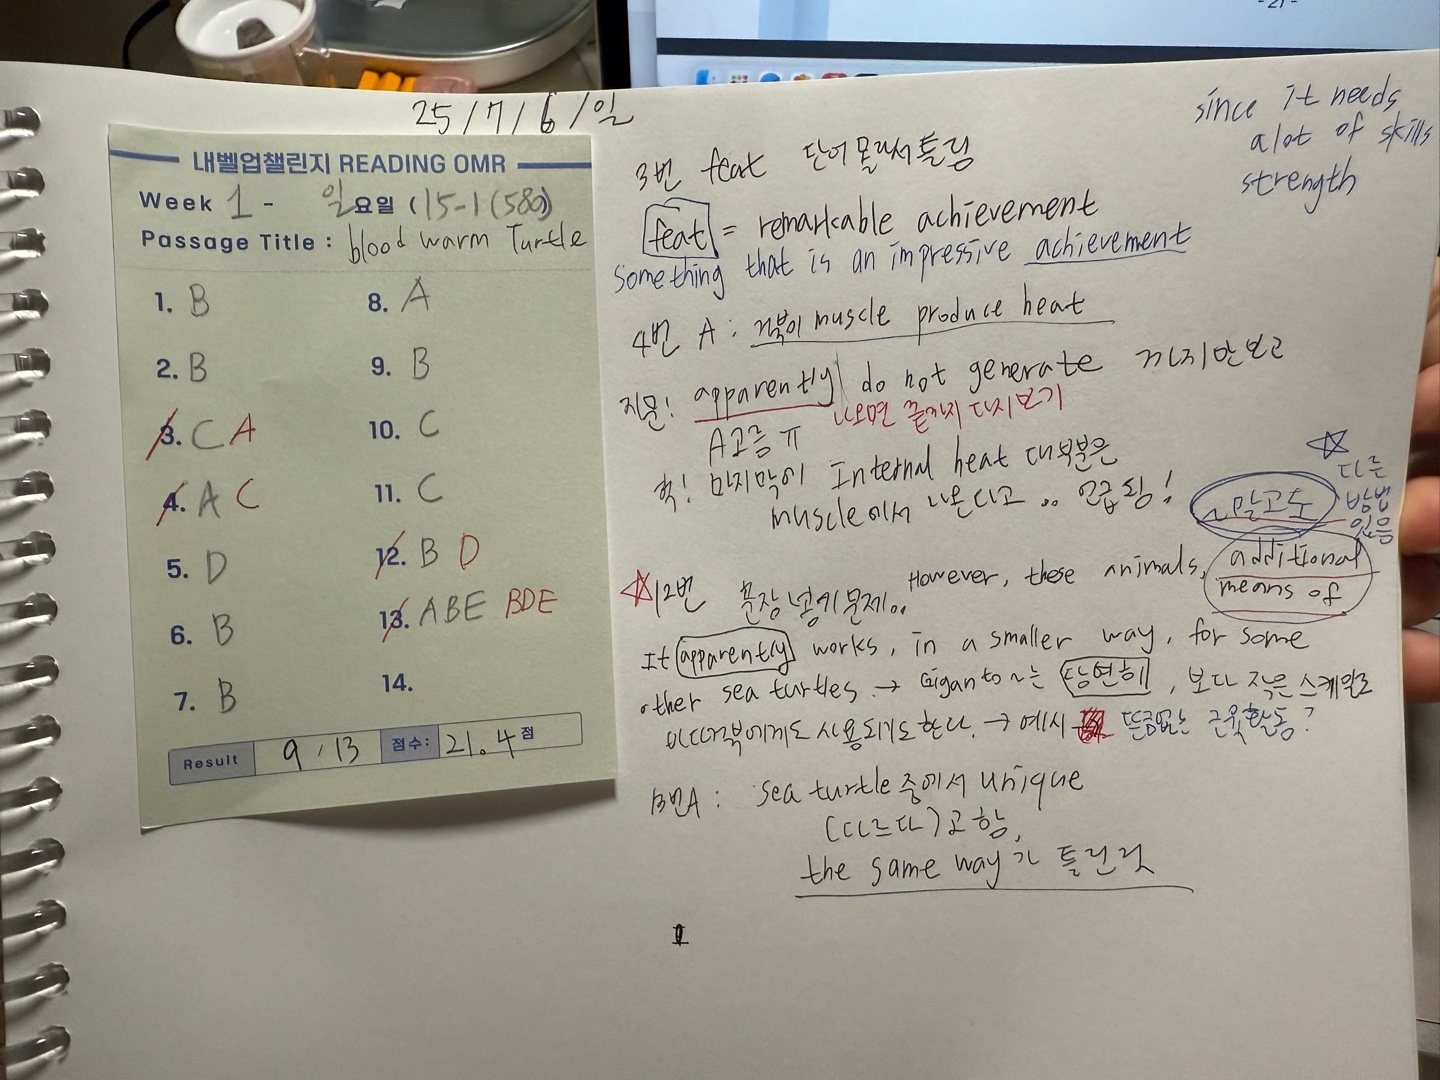 - 21 -
25/7/6/일
내벨업챌린지 READING OMR
Week 1 - 일요일 (15-1(580)
Passage Title : blood warm Turtle
1. B
2. B
3. C A
4. A C
5. D
6. B
7. B
8. A
9. B
10. C
11. C
12. B D
13. ABE BDE
14.
Result 9/13 점수: 21.4점
since it needs
a lot of skills
strength
3번 feat 단어 몰라서 틀림
feat = remarkable achievement
something that is an impressive achievement
4번 A: 거북이 muscle produce heat
지문! apparently do not generate 까지만 보고
나오면 끝까지 다시보기
A고름 ㅠ
헉! 마지막이 Internal heat 대부분은
muscle에서 나온다고 .. 언급됨!
~말고도
다른
방법
있음
12번 문장넣기문제.. However, these animals, additional
means of
It apparently works, in a smaller way, for some
other sea turtles → Giganto~는 당연히, 보다 작은 스케일로
바다거북에게도 사용되기도 한다. → 예시 뜬금없는 근육활동?
13번A: sea turtle 중에서 unique
(다르다)고 함,
the same way가 틀린것